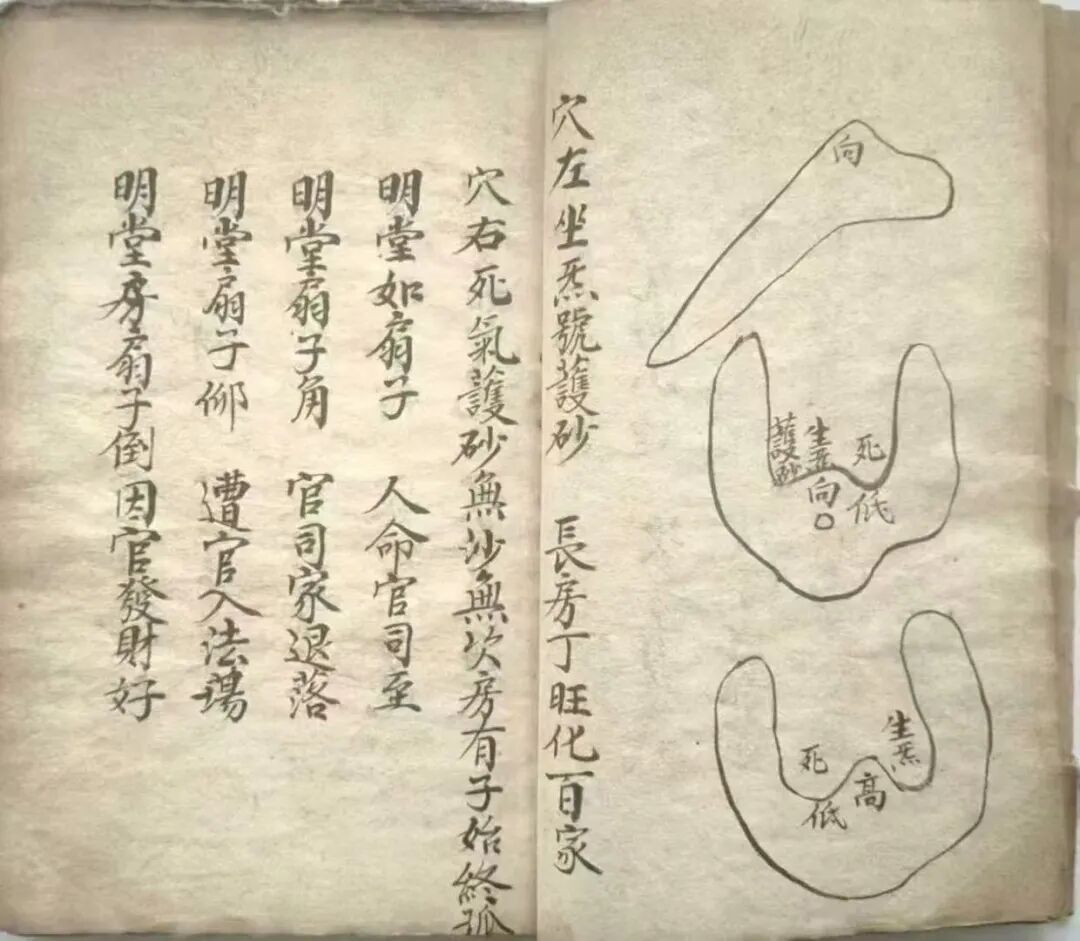 向
死
低
生炁向
護砂
生炁
高
死
低
穴左坐炁號護砂 長房丁旺化百家
穴右死氣護砂無沙無次房有子始終孤
明堂如扇子 人命官司至
明堂扇子角 官司家退落
明堂扇子仰 遭官入法場
明堂扇子倒因官發財好